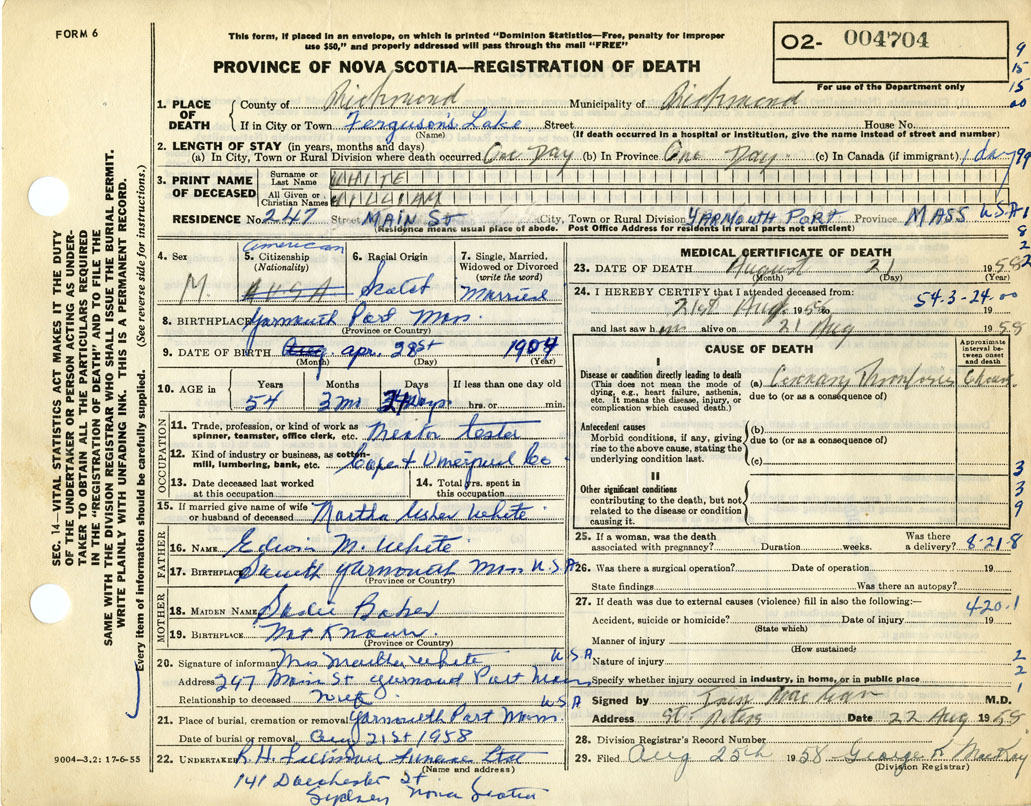 FORM 6
This form, if placed in an envelope, on which is printed "Dominion Statistics—Free, penalty for improper
use $50," and properly addressed will pass through the mail "FREE"
PROVINCE OF NOVA SCOTIA—REGISTRATION OF DEATH
O2- 004704
For use of the Department only
9
15
15
00
1. PLACE OF DEATH
County of Richmond Municipality of Richmond
If in City or Town Ferguson's Lake Street House No.
(Name) (If death occurred in a hospital or institution, give the name instead of street and number)
2. LENGTH OF STAY (in years, months and days)
(a) In City, Town or Rural Division where death occurred One Day (b) In Province One Day (c) In Canada (if immigrant) 1 da 799
3. PRINT NAME OF DECEASED
Surname or Last Name WHITE
All Given or Christian Names WILLIAM
RESIDENCE No. 247 Street MAIN St City, Town or Rural Division YARMOUTH PORT Province MASS USA
(Residence means usual place of abode. Post Office Address for residents in rural parts not sufficient)
1
8
2
2
4. Sex
M.
5. Citizenship
(Nationality)
American
USA
6. Racial Origin
Scotch
7. Single, Married,
Widowed or Divorced
(write the word)
Married
8. BIRTHPLACE Yarmouth Port Mass.
(Province or Country)
9. DATE OF BIRTH Aug. apr. 28st 1904
(Month) (Day) (Year)
10. AGE in Years Months Days If less than one day old
54 3 mos 24 Days hrs. or min.
OCCUPATION
11. Trade, profession, or kind of work as
spinner, teamster, office clerk, etc. Tester
12. Kind of industry or business, as cotton-
mill, lumbering, bank, etc. Cape & Co
13. Date deceased last worked
at this occupation
14. Total yrs. spent in
this occupation
15. If married give name of wife
or husband of deceased Martha White
FATHER
16. NAME Edwin M. White
17. BIRTHPLACE South Yarmouth Mass USA
(Province or Country)
MOTHER
18. MAIDEN NAME Sadie Baker
19. BIRTHPLACE Not Known.
(Province or Country)
20. Signature of informant Mrs Martha White USA
Address 247 Main St Yarmouth Port Mass
Relationship to deceased Wife USA
21. Place of burial, cremation or removal Yarmouth Port Mass.
Date of burial or removal Aug 21st 1958
22. UNDERTAKER R.H.
(Name and address)
141 Dorchester St
Sydney Nova Scotia
MEDICAL CERTIFICATE OF DEATH
23. DATE OF DEATH August 21 1958
(Month) (Day) (Year)
24. I HEREBY CERTIFY that I attended deceased from: 54.3-24.00
21st Aug 1958 to 19
and last saw him alive on 21 Aug 1958
CAUSE OF DEATH
Approximate
interval be-
tween onset
and death
I
Disease or condition directly leading to death
(This does not mean the mode of
dying, e.g., heart failure, asthenia,
etc. It means the disease, injury, or
complication which caused death.)
(a) Coronary Thrombosis
due to (or as a consequence of)
Antecedent causes
Morbid conditions, if any, giving
rise to the above cause, stating the
underlying condition last.
(b)
due to (or as a consequence of)
(c)
II
Other significant conditions
contributing to the death, but not
related to the disease or condition
causing it.
3
3
9
25. If a woman, was the death
associated with pregnancy? Duration weeks. Was there
a delivery? 8-21-8
26. Was there a surgical operation? Date of operation 19
State findings Was there an autopsy?
27. If death was due to external causes (violence) fill in also the following:—
420.1
Accident, suicide or homicide? Date of injury 19
(State which)
Manner of injury
(How sustained)
Nature of injury 2
Specify whether injury occurred in industry, in home, or in public place 2
1
Signed by Iain M.D.
Address St. Peters Date 22 Aug 1958
28. Division Registrar's Record Number
29. Filed Aug 25th 1958 George R MacKay
(Division Registrar)
SEC. 14—VITAL STATISTICS ACT MAKES IT THE DUTY
OF THE UNDERTAKER OR PERSON ACTING AS UNDER-
TAKER TO OBTAIN ALL THE PARTICULARS REQUIRED
IN THE "REGISTRATION OF DEATH" AND TO FILE THE
SAME WITH THE DIVISION REGISTRAR WHO SHALL ISSUE THE BURIAL PERMIT.
WRITE PLAINLY WITH UNFADING INK. THIS IS A PERMANENT RECORD.
Every item of information should be carefully supplied. (See reverse side for instructions.)
9004—3.2: 17-6-55